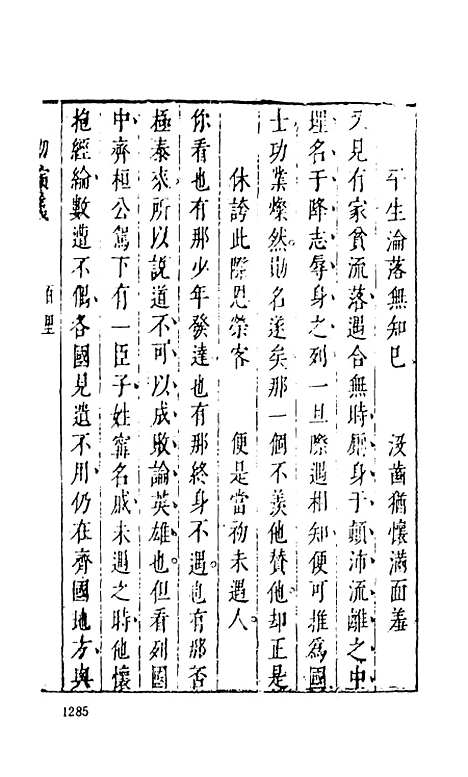 平生淪落無知已　　没齒猶懷滿面羞
又見有家貧流落遇合無時厠身于顛沛流離之中
埋名于降志辱身之列一旦際遇相知便可推爲國
士功業燦然勛名遂矣那一個不羨他賛他却正是
休誇此際恩榮客　　便是當初未遇人
你看也有那少年發達也有那終身不遇也有那否
極泰來所以説道不可以成敗論英雄也但看列國
中齊桓公駕下有一臣子姓甯名戚未遇之時他懷
抱經綸數遭不偶各國見遺不用仍在齊國地方與
百里
1285